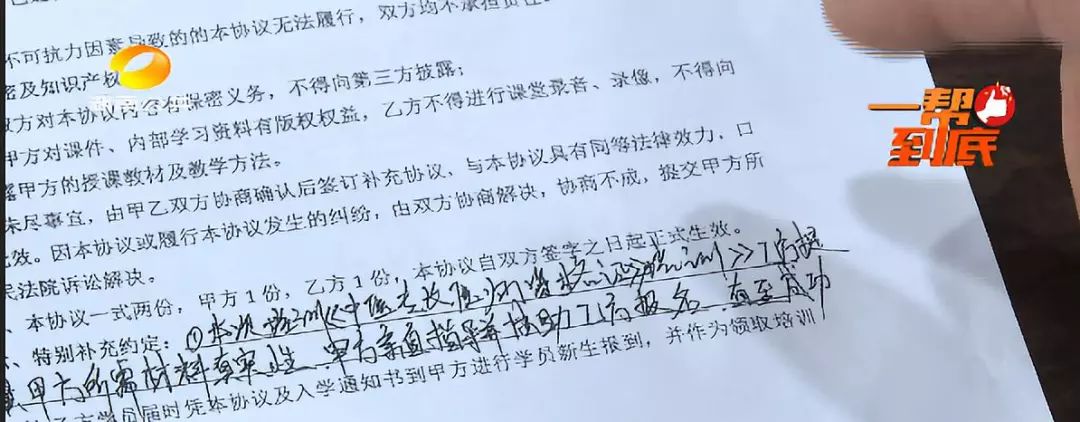 不可抗力因素导致的的本协议无法履行，双方均不承担责任
密及知识产权
双方对本协议内容有保密义务，不得向第三方披露；
甲方对课件、内部学习资料有版权权益，乙方不得进行课堂录音、录像，不得向
露甲方的授课教材及教学方法。
未尽事宜，由甲乙双方协商确认后签订补充协议，与本协议具有同等法律效力，口
效。因本协议或履行本协议发生的纠纷，由双方协商解决，协商不成，提交甲方所
民法院诉讼解决。
、本协议一式两份，甲方1份，乙方1份，本协议自双方签字之日起正式生效。
、特别补充约定：①本次培训《中医专长医师资格证培训》乙方提
甲方所需材料真实性，甲方亲自指导并协助乙方报名，直至成功
乙方学员届时凭本协议及入学通知书到甲方进行学员新生报到，并作为领取培训
一帮
到底